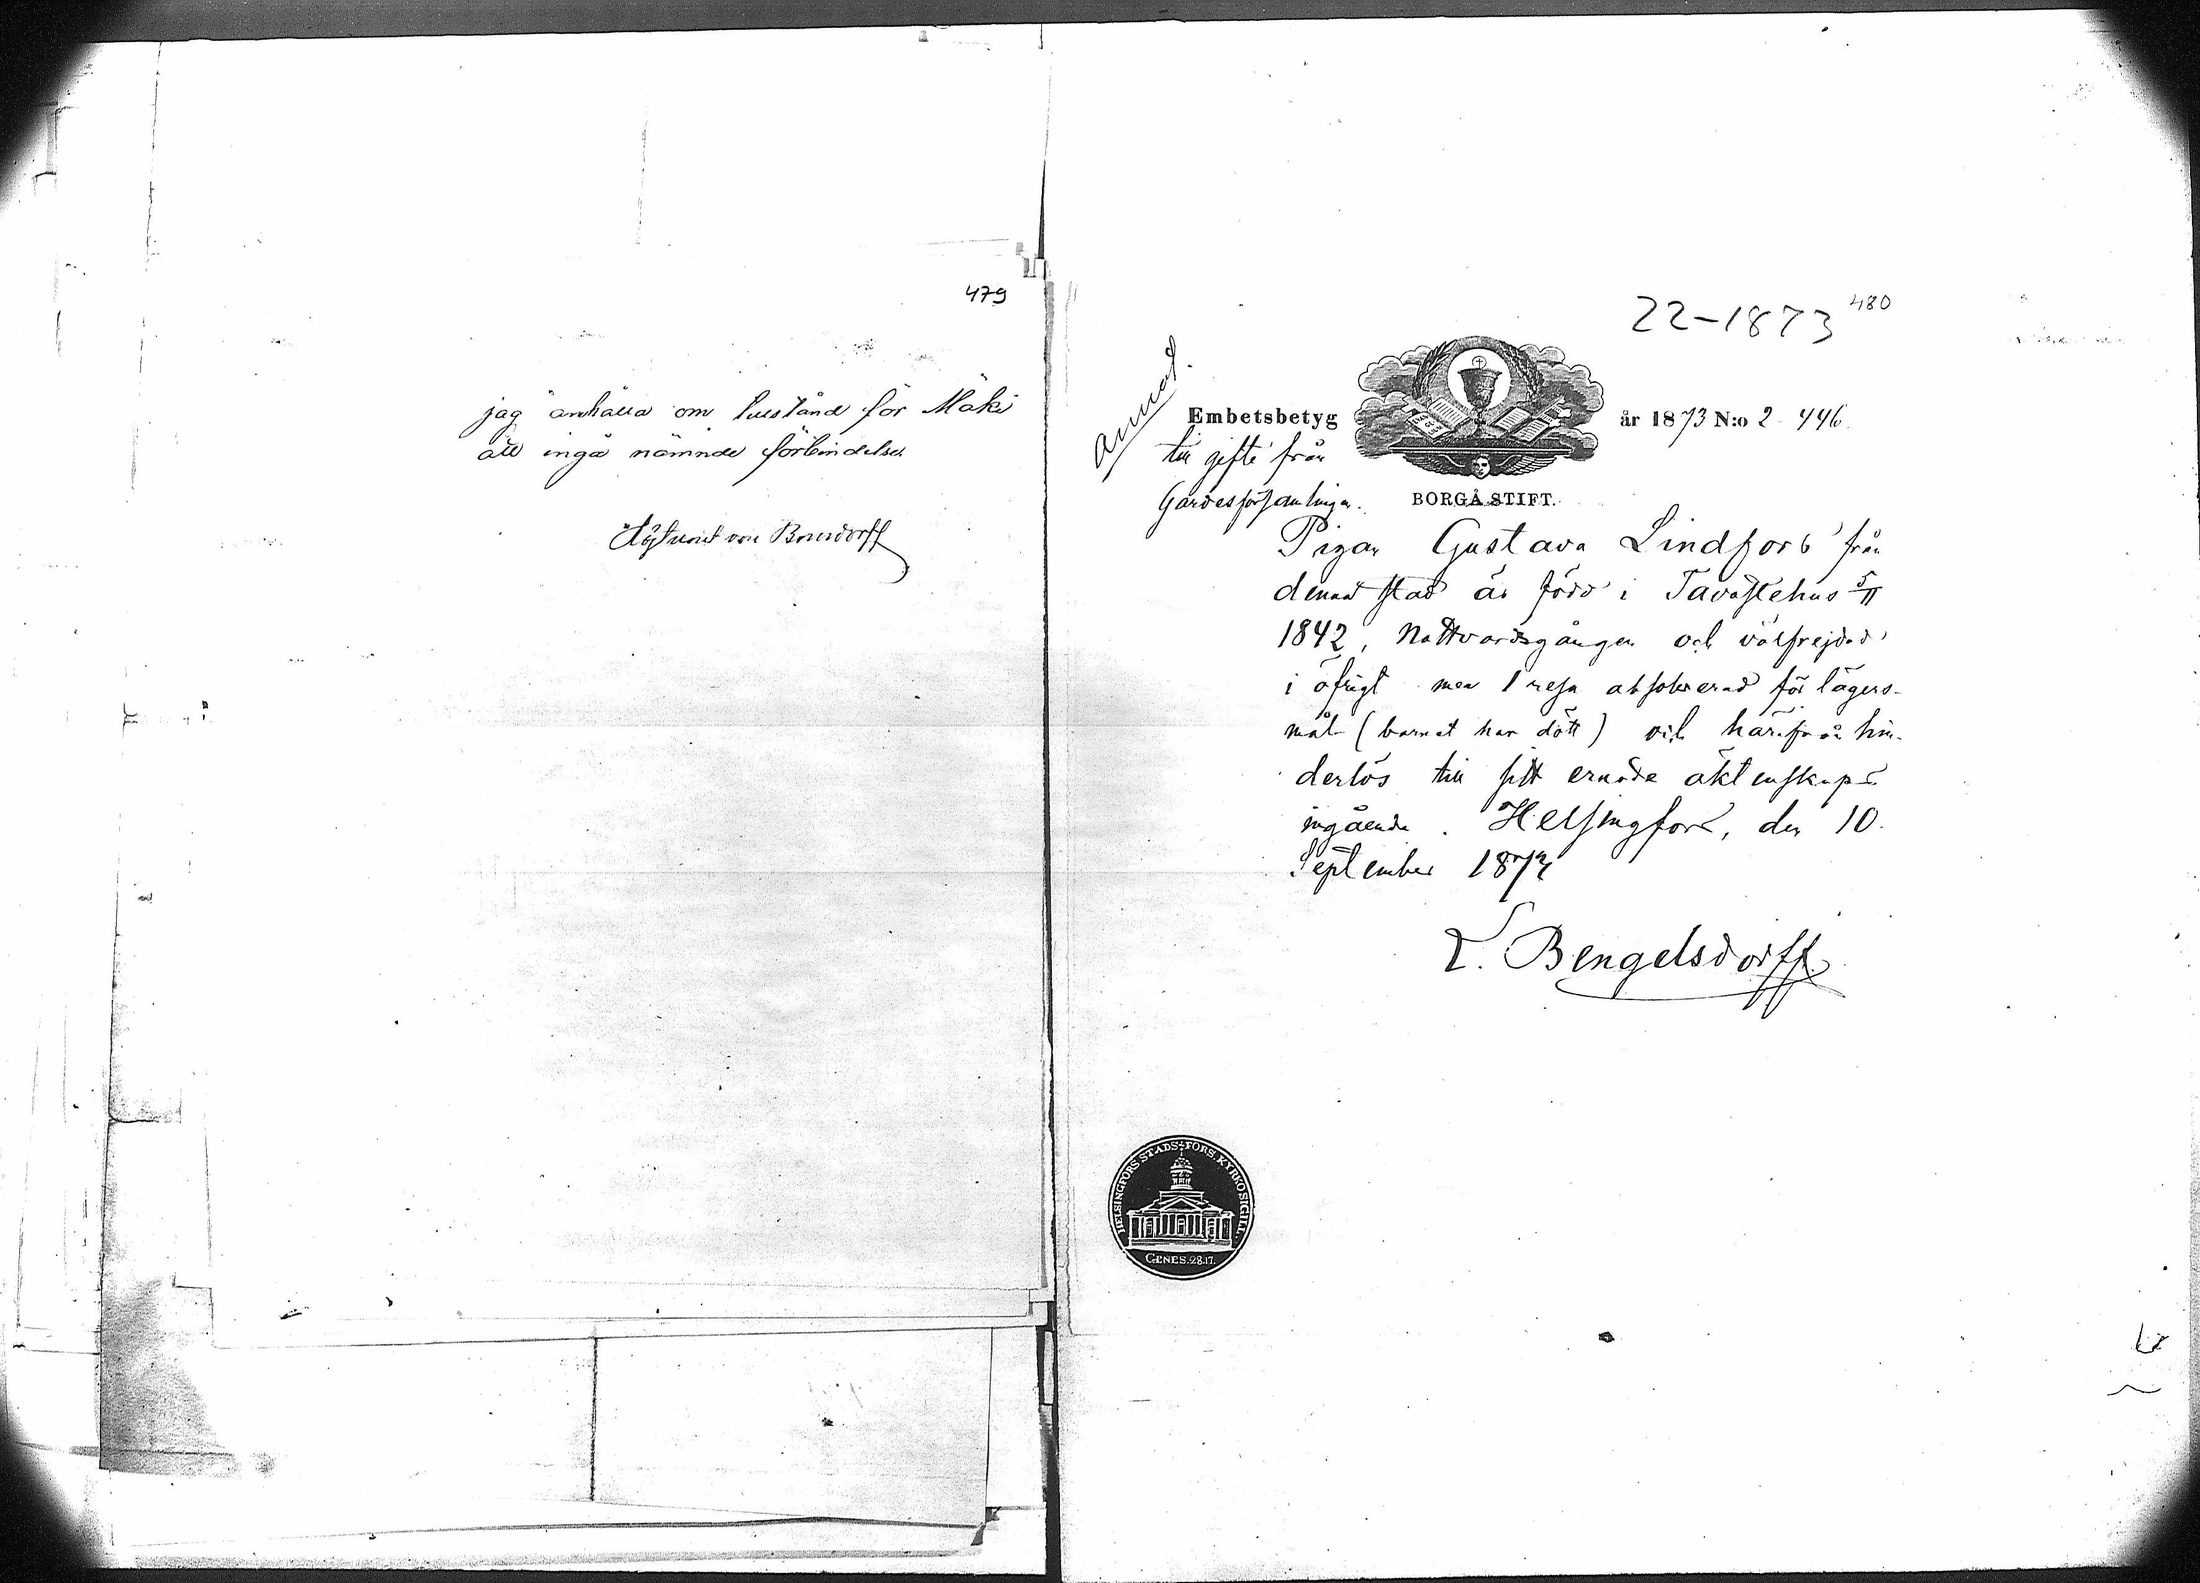 479
jag anhålla om tillstånd för Mäki
att ingå nämnde förbindelse.
von Bonsdorff
22-1873
480
Embetsbetyg
år 1873 N:o 2446.
till gifte från
Gardesförsamlingen.
BORGÅ STIFT.
Pigan Gustava Lindfors från
denna stad är född i Tavastehus 5/11
1842, Nattvardsgången och välfrejdad
i öfrigt men 1 resa absolverad för lägers-
mål (barnet har dött) och härifrån hin-
derlös till sitt ernade äktenskaps
ingående. Helsingfors, den 10
September 1873
L. Bengelsdorff
HELSINGFORS STADS FÖRS. KYRKOSIGILL.
GENES. 28.17.